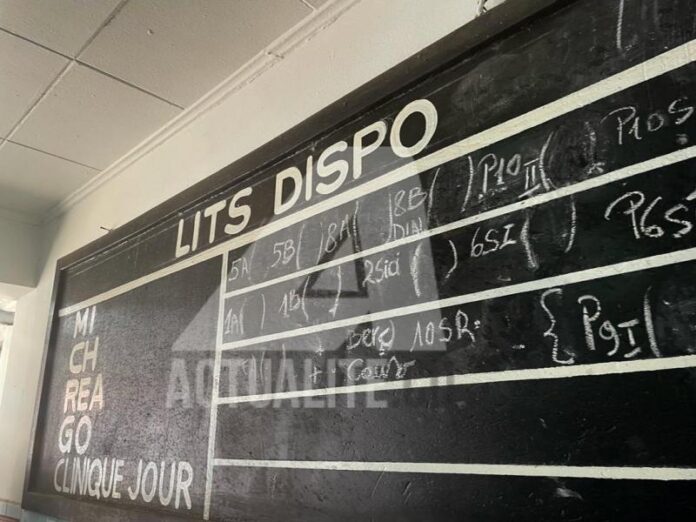 LITS DISPO
5A( 5B( )8A( )8B( )P10II( ) P10S
DIN
MI
1A( ) 1B( ) 2Sid ( ) 6SI ( ) P6S
CH
+ Berg 10SR: - { P9I (
+ Cour
REA
GO
CLINIQUE JOUR
ACTUALITE